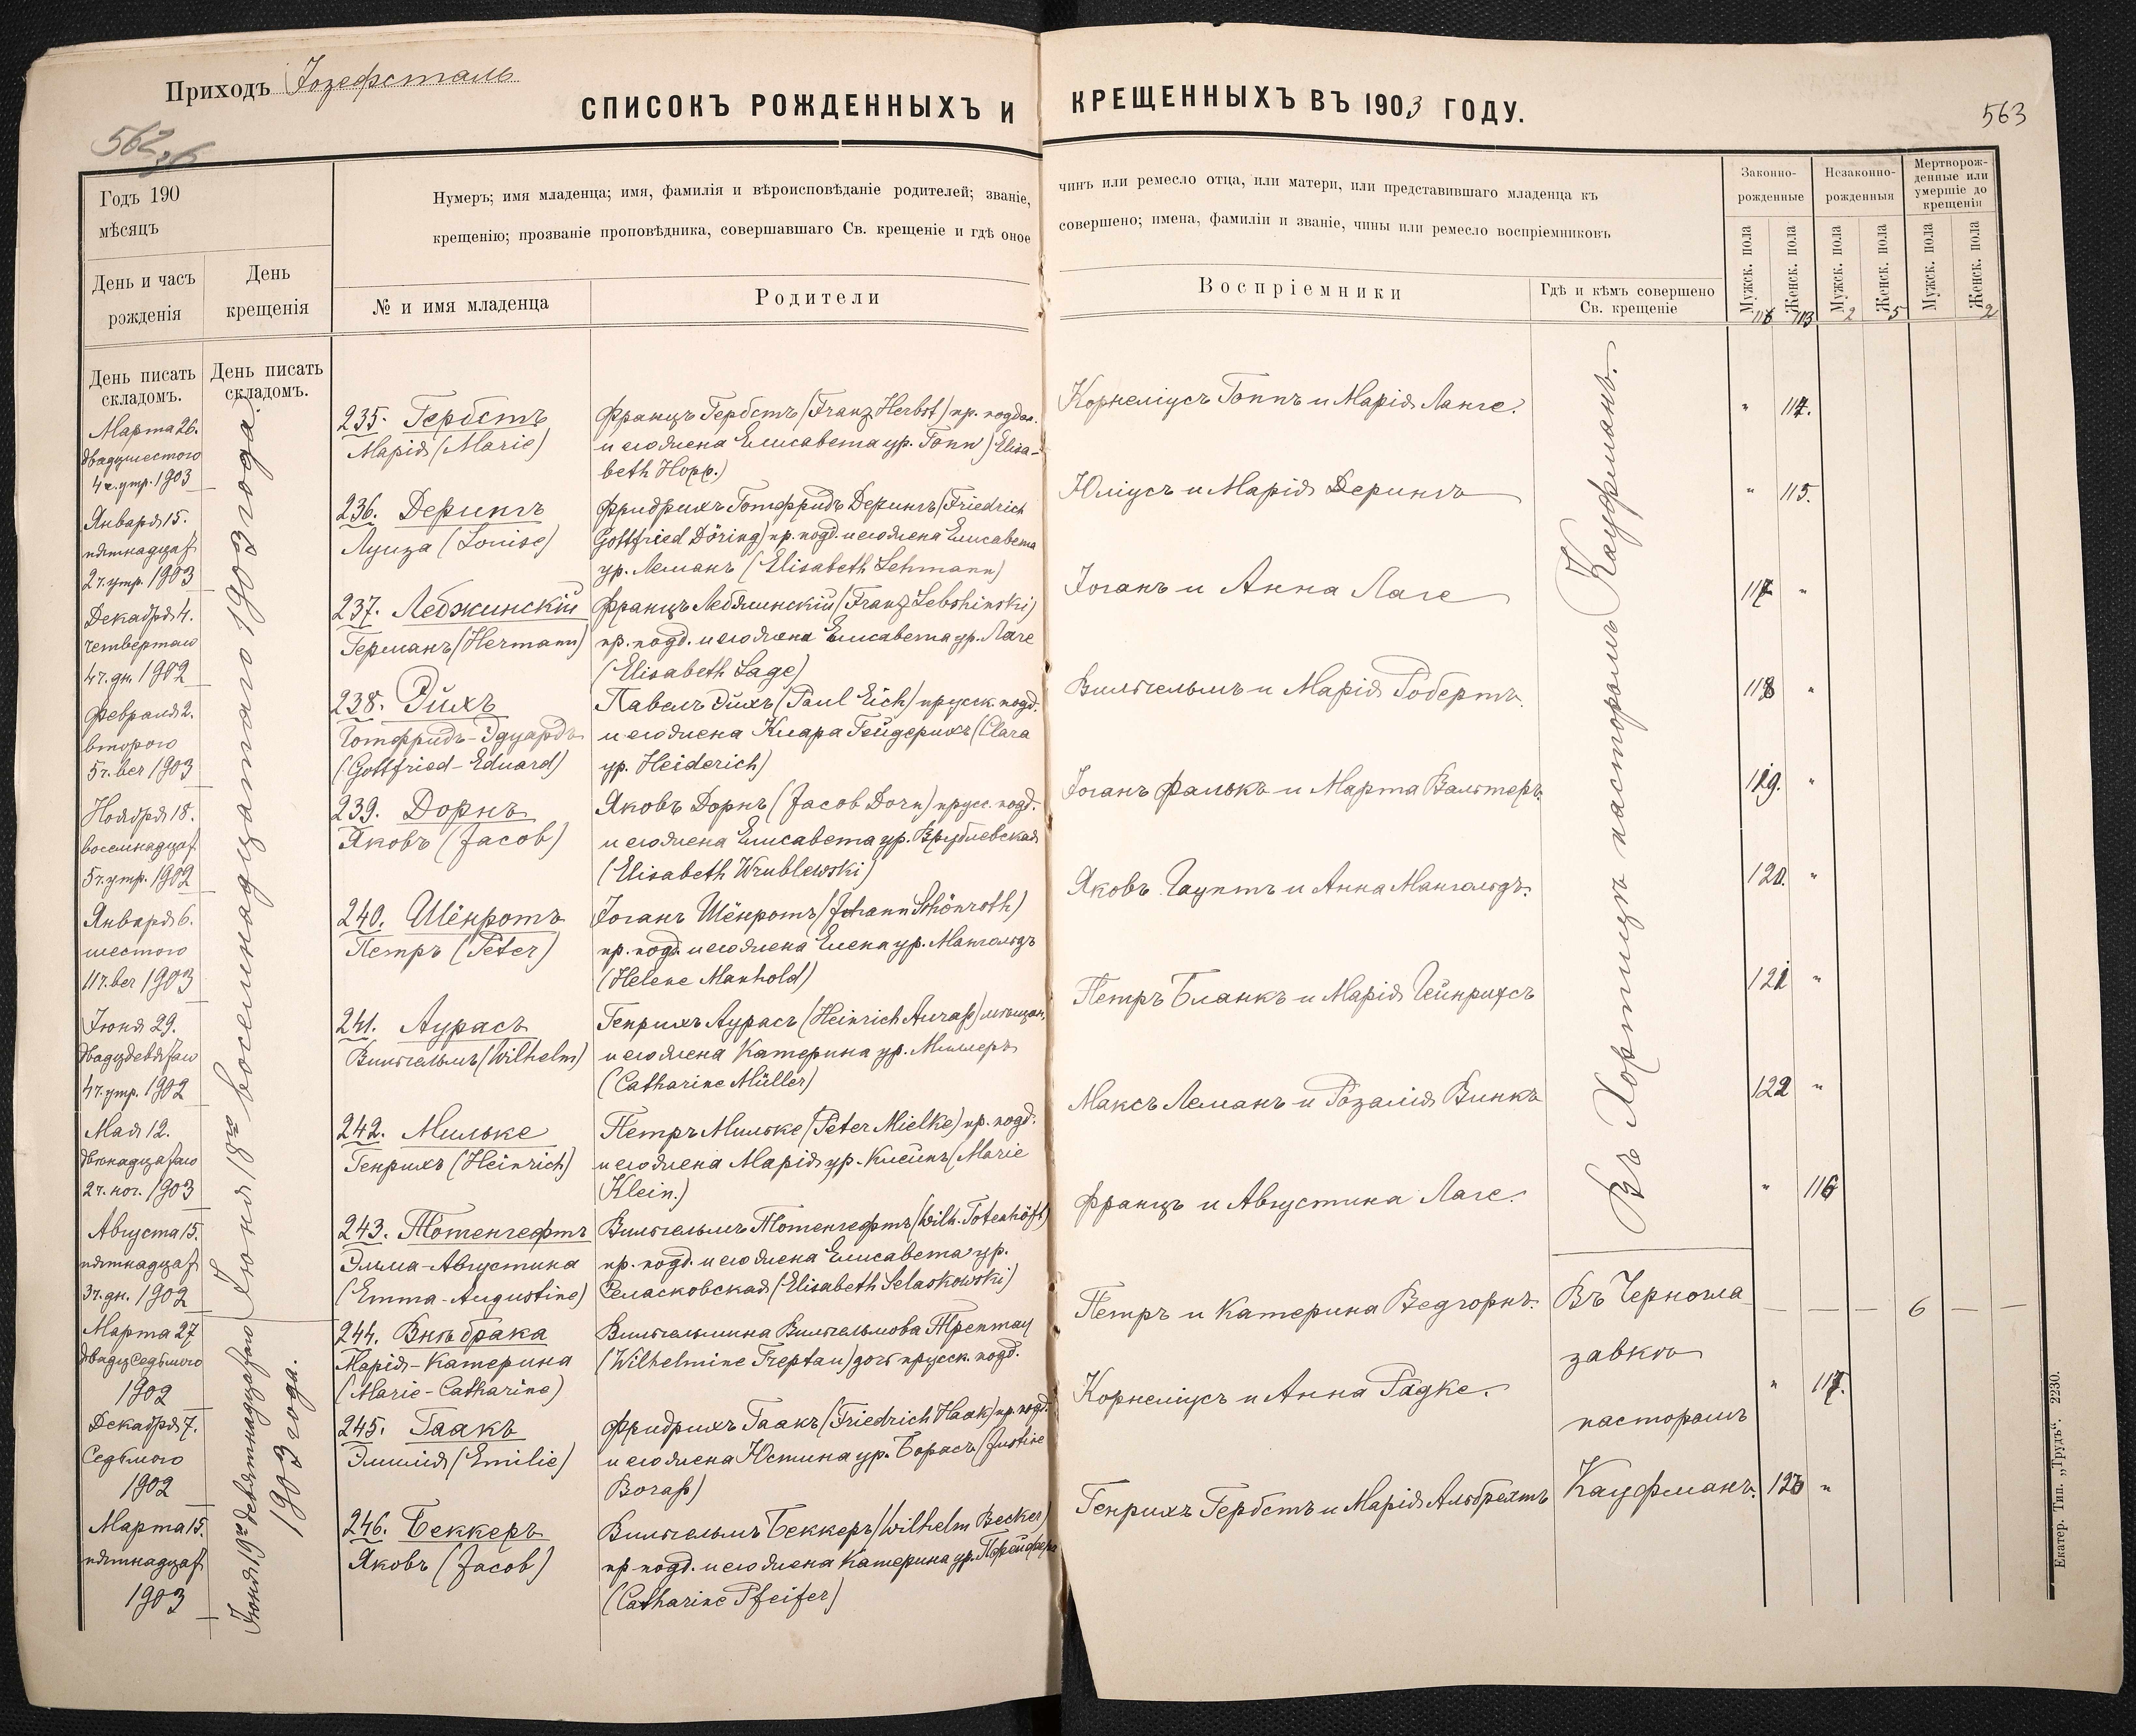 Приходъ Іозефсталь
СПИСОКЪ РОЖДЕННЫХЪ И КРЕЩЕННЫХЪ ВЪ 1903 ГОДУ.
562
563
Годъ 190
мѣсяцъ
Нумеръ; имя младенца; имя, фамилія и вѣроисповѣданіе родителей; званіе, чинъ или ремесло отца, или матери, или представившаго младенца къ
крещенію; прозваніе проповѣдника, совершавшаго Св. крещеніе и гдѣ оное совершено; имена, фамиліи и званіе, чины или ремесло воспріемниковъ
День и часъ
рожденія
День
крещенія
№ и имя младенца
Родители
Воспріемники
Гдѣ и кѣмъ совершено
Св. крещеніе
Законно-
рожденные
Незаконно-
рожденныя
Мертворож-
денные или
умершіе до
крещенія
Мужск. пола
Женск. пола
Мужск. пола
Женск. пола
Мужск. пола
Женск. пола
116 113 2 5 2
День писать
складомъ.
День писать
складомъ.
Марта 26.
двадцшестого
4 ч. утр. 1903
235. Гербстъ
Марія (Marie)
Францъ Гербстъ (Franz Herbst) пр. поддан.
и его жена Елисавета ур. Гопп (Elisa-
beth Hopp.)
Корнеліусъ Гоппъ и Марія Ланге.
" 114.
Января 15.
пятнадцат
2 ч. утр. 1903
236. Дерингъ
Луиза (Louise)
Фридрихъ Готфридъ Дерингъ (Friedrich
Gottfried Döring) пр. подд. и его жена Елисавета
ур. Леманъ (Elisabeth Lehmann)
Юліусъ и Марія Дерингъ
" 115.
Декабря 4.
четвертаго
4 ч. дн. 1902
237. Лебжинскій
Германъ (Hermann)
Францъ Лебжинскій (Franz Lebshinski)
пр. подд. и его жена Елисавета ур. Лаге
(Elisabeth Lage)
Іоганъ и Анна Лаге
117 "
Февраля 2.
второго
5 ч. веч 1903
238. Эйхъ
Готфридъ-Эдуардъ
(Gottfried-Eduard)
Павелъ Эйхъ (Paul Eich) прусск. подд.
и его жена Клара Гейдерихъ (Clara
ур. Heiderich)
Вильгельмъ и Марія Робертъ.
118 "
Ноября 18.
восемнадцат
5 ч. утр. 1902
239. Дорнъ
Яковъ (Jacob)
Яковъ Дорнъ (Jacob Dorn) прусс. подд.
и его жена Елисавета ур. Врублевская
(Elisabeth Wrublewski)
Іоганъ Фалькъ и Марта Вальтеръ.
119. "
Января 6.
шестого
11 ч. веч 1903
240. Шёнротъ
Петръ (Peter)
Іоганъ Шёнротъ (Johann Schönroth)
пр. подд. и его жена Елена ур. Мангольдъ
(Helene Manhold)
Яковъ Гауптъ и Анна Мангольдъ.
120. "
Іюня 29.
двадцдевятаго
4 ч. утр. 1902
241. Аурасъ
Вильгельмъ (Wilhelm)
Генрихъ Аурасъ (Heinrich Auraß) мѣщан.
и его жена Катерина ур. Миллеръ
(Catharine Müller)
Петръ Бланкъ и Марія Гейнрихсъ
121 "
Мая 12.
двѣнадцатаго
2 ч. ноч. 1903
242. Мильке
Генрихъ (Heinrich)
Петръ Мильке (Peter Mielke) пр. подд.
и его жена Марія ур. Клейнъ (Marie
Klein.)
Максъ Леманъ и Розалія Винкъ
122 "
Августа 15.
пятнадцат
3 ч. дн. 1902
243. Тотенгефтъ
Эмма-Августина
(Emma-Augustine)
Вильгельмъ Тотенгефтъ (Wilh. Totenhöft)
пр. подд. и его жена Елисавета ур.
Селасковская (Elisabeth Selaskowski)
Францъ и Августина Лаге.
" 116
Іюня 18го восемнадцатаго 1903 года.
Въ Хортицѣ пасторомъ Кауфманъ.
Марта 27
двадцседьмого
1902
244. Внѣ брака
Марія-Катерина
(Marie-Catharine)
Вильгельмина Вильгельмова Трептау
(Wilhelmine Treptau) дочь прусск. подд.
Петръ и Катерина Ведгорнъ.
— — — 6 — —
Декабря 7.
Седьмого
1902
245. Гаакъ
Эмилія (Emilie)
Фридрихъ Гаакъ (Friedrich Haak) пр. подд.
и его жена Юстина ур. Борасъ (Justine
Boraß)
Корнеліусъ и Анна Радке.
" 117.
Марта 15.
пятнадцат
1903
246. Беккеръ
Яковъ (Jacob)
Вильгельмъ Беккеръ (Wilhelm Becker)
пр подд. и его жена Катерина ур. Пфейферъ
(Catharine Pfeifer)
Генрихъ Гербстъ и Марія Альбрехтъ
123 "
Іюня 19го девятнадцатаго
1903 года.
Въ Чернопла
завкѣ
пасторомъ
Кауфманъ.
Екатер. Тип. „Трудъ“. 2230.